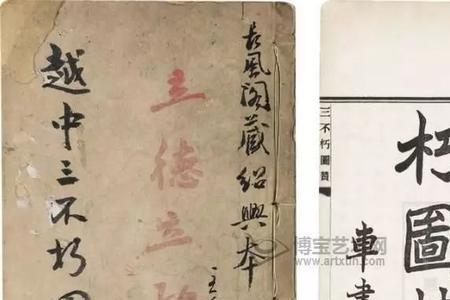 古風閣藏紹興本
立德立
越中三不朽
朽圖
車書
三不朽圖贊
博宝艺术网
www.artxun.com